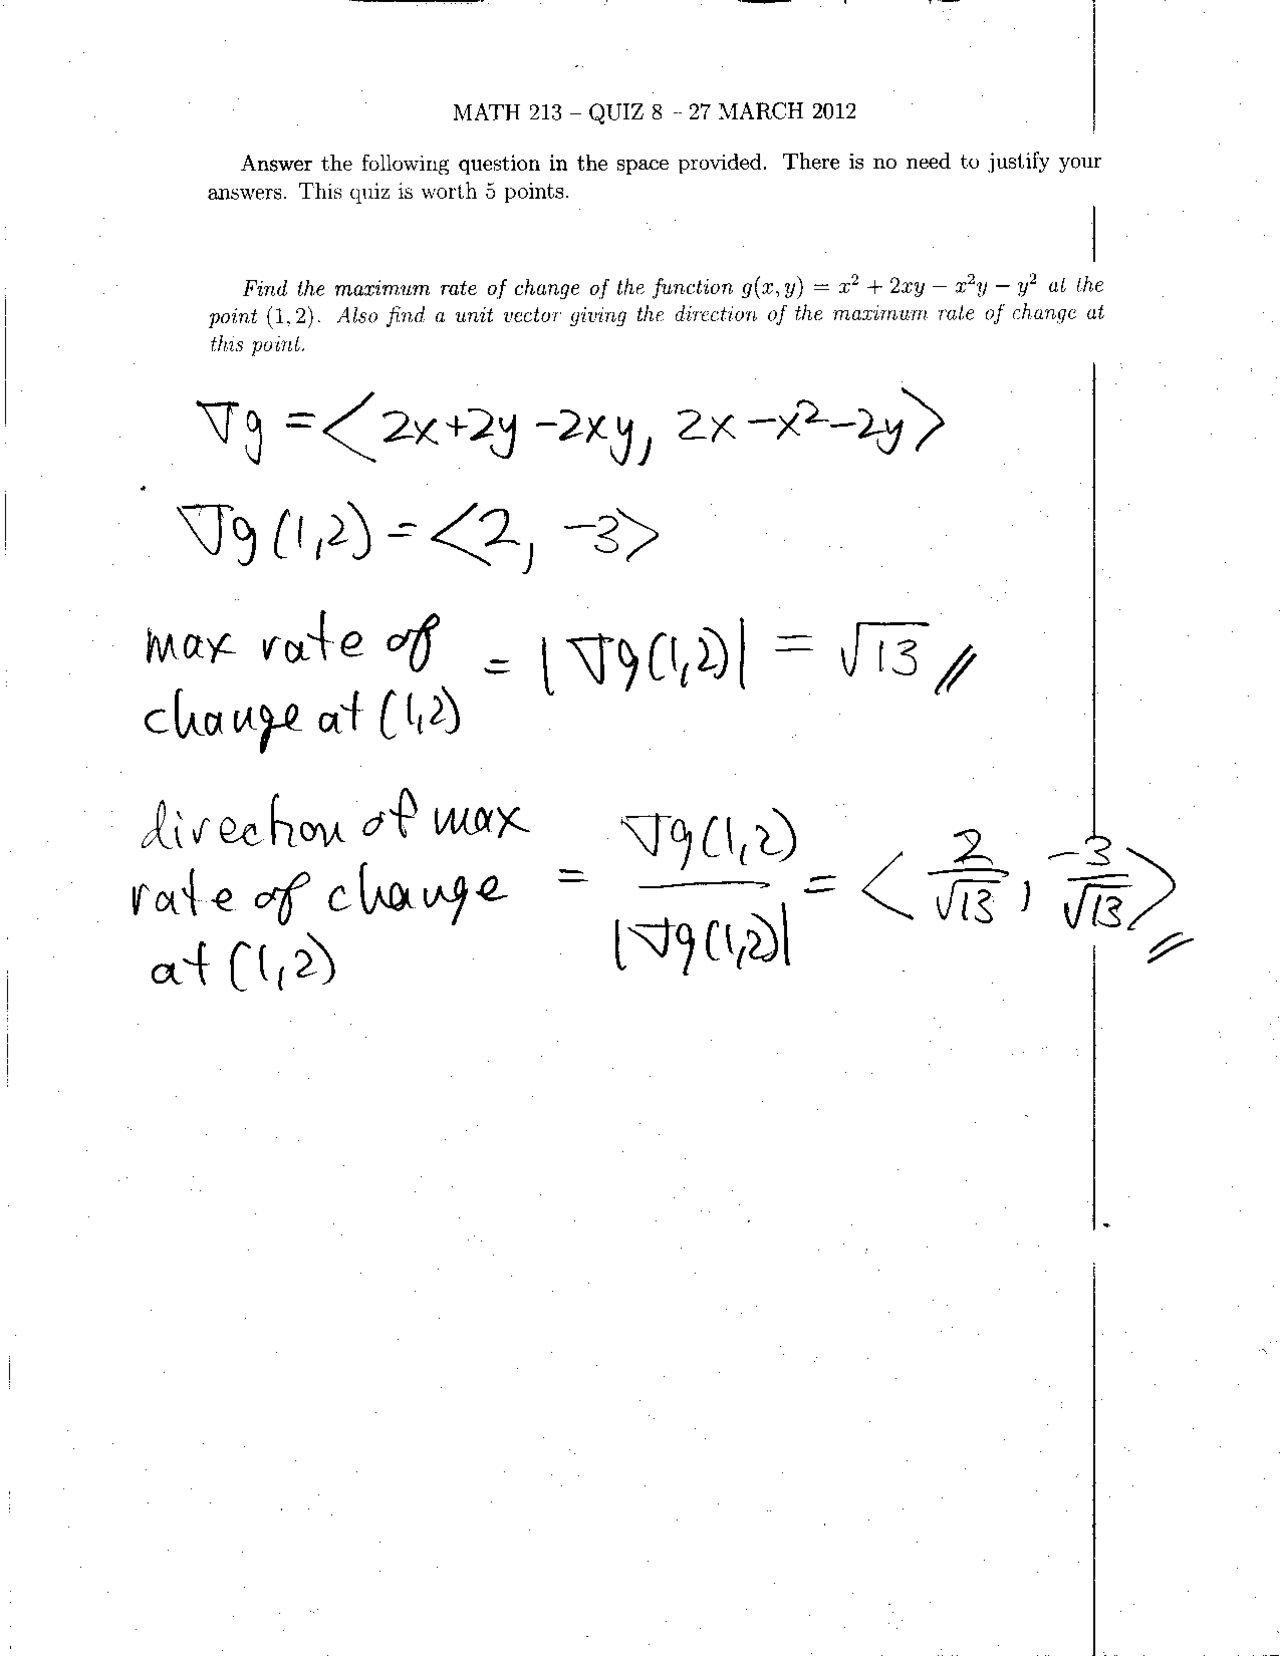 MATH 213 – QUIZ 8 – 27 MARCH 2012
Answer the following question in the space provided. There is no need to justify your
answers. This quiz is worth 5 points.
Find the maximum rate of change of the function g(x, y) = x² + 2xy − x²y − y² at the
point (1, 2). Also find a unit vector giving the direction of the maximum rate of change at
this point.
∇g = <2x+2y −2xy, 2x −x²−2y>
∇g(1,2) = <2, −3>
max rate of
change at (1,2) = |∇g(1,2)| = √13 //
direction of max
rate of change = ∇g(1,2) / |∇g(1,2)| = <2/√13, −3/√13> //
at (1,2)